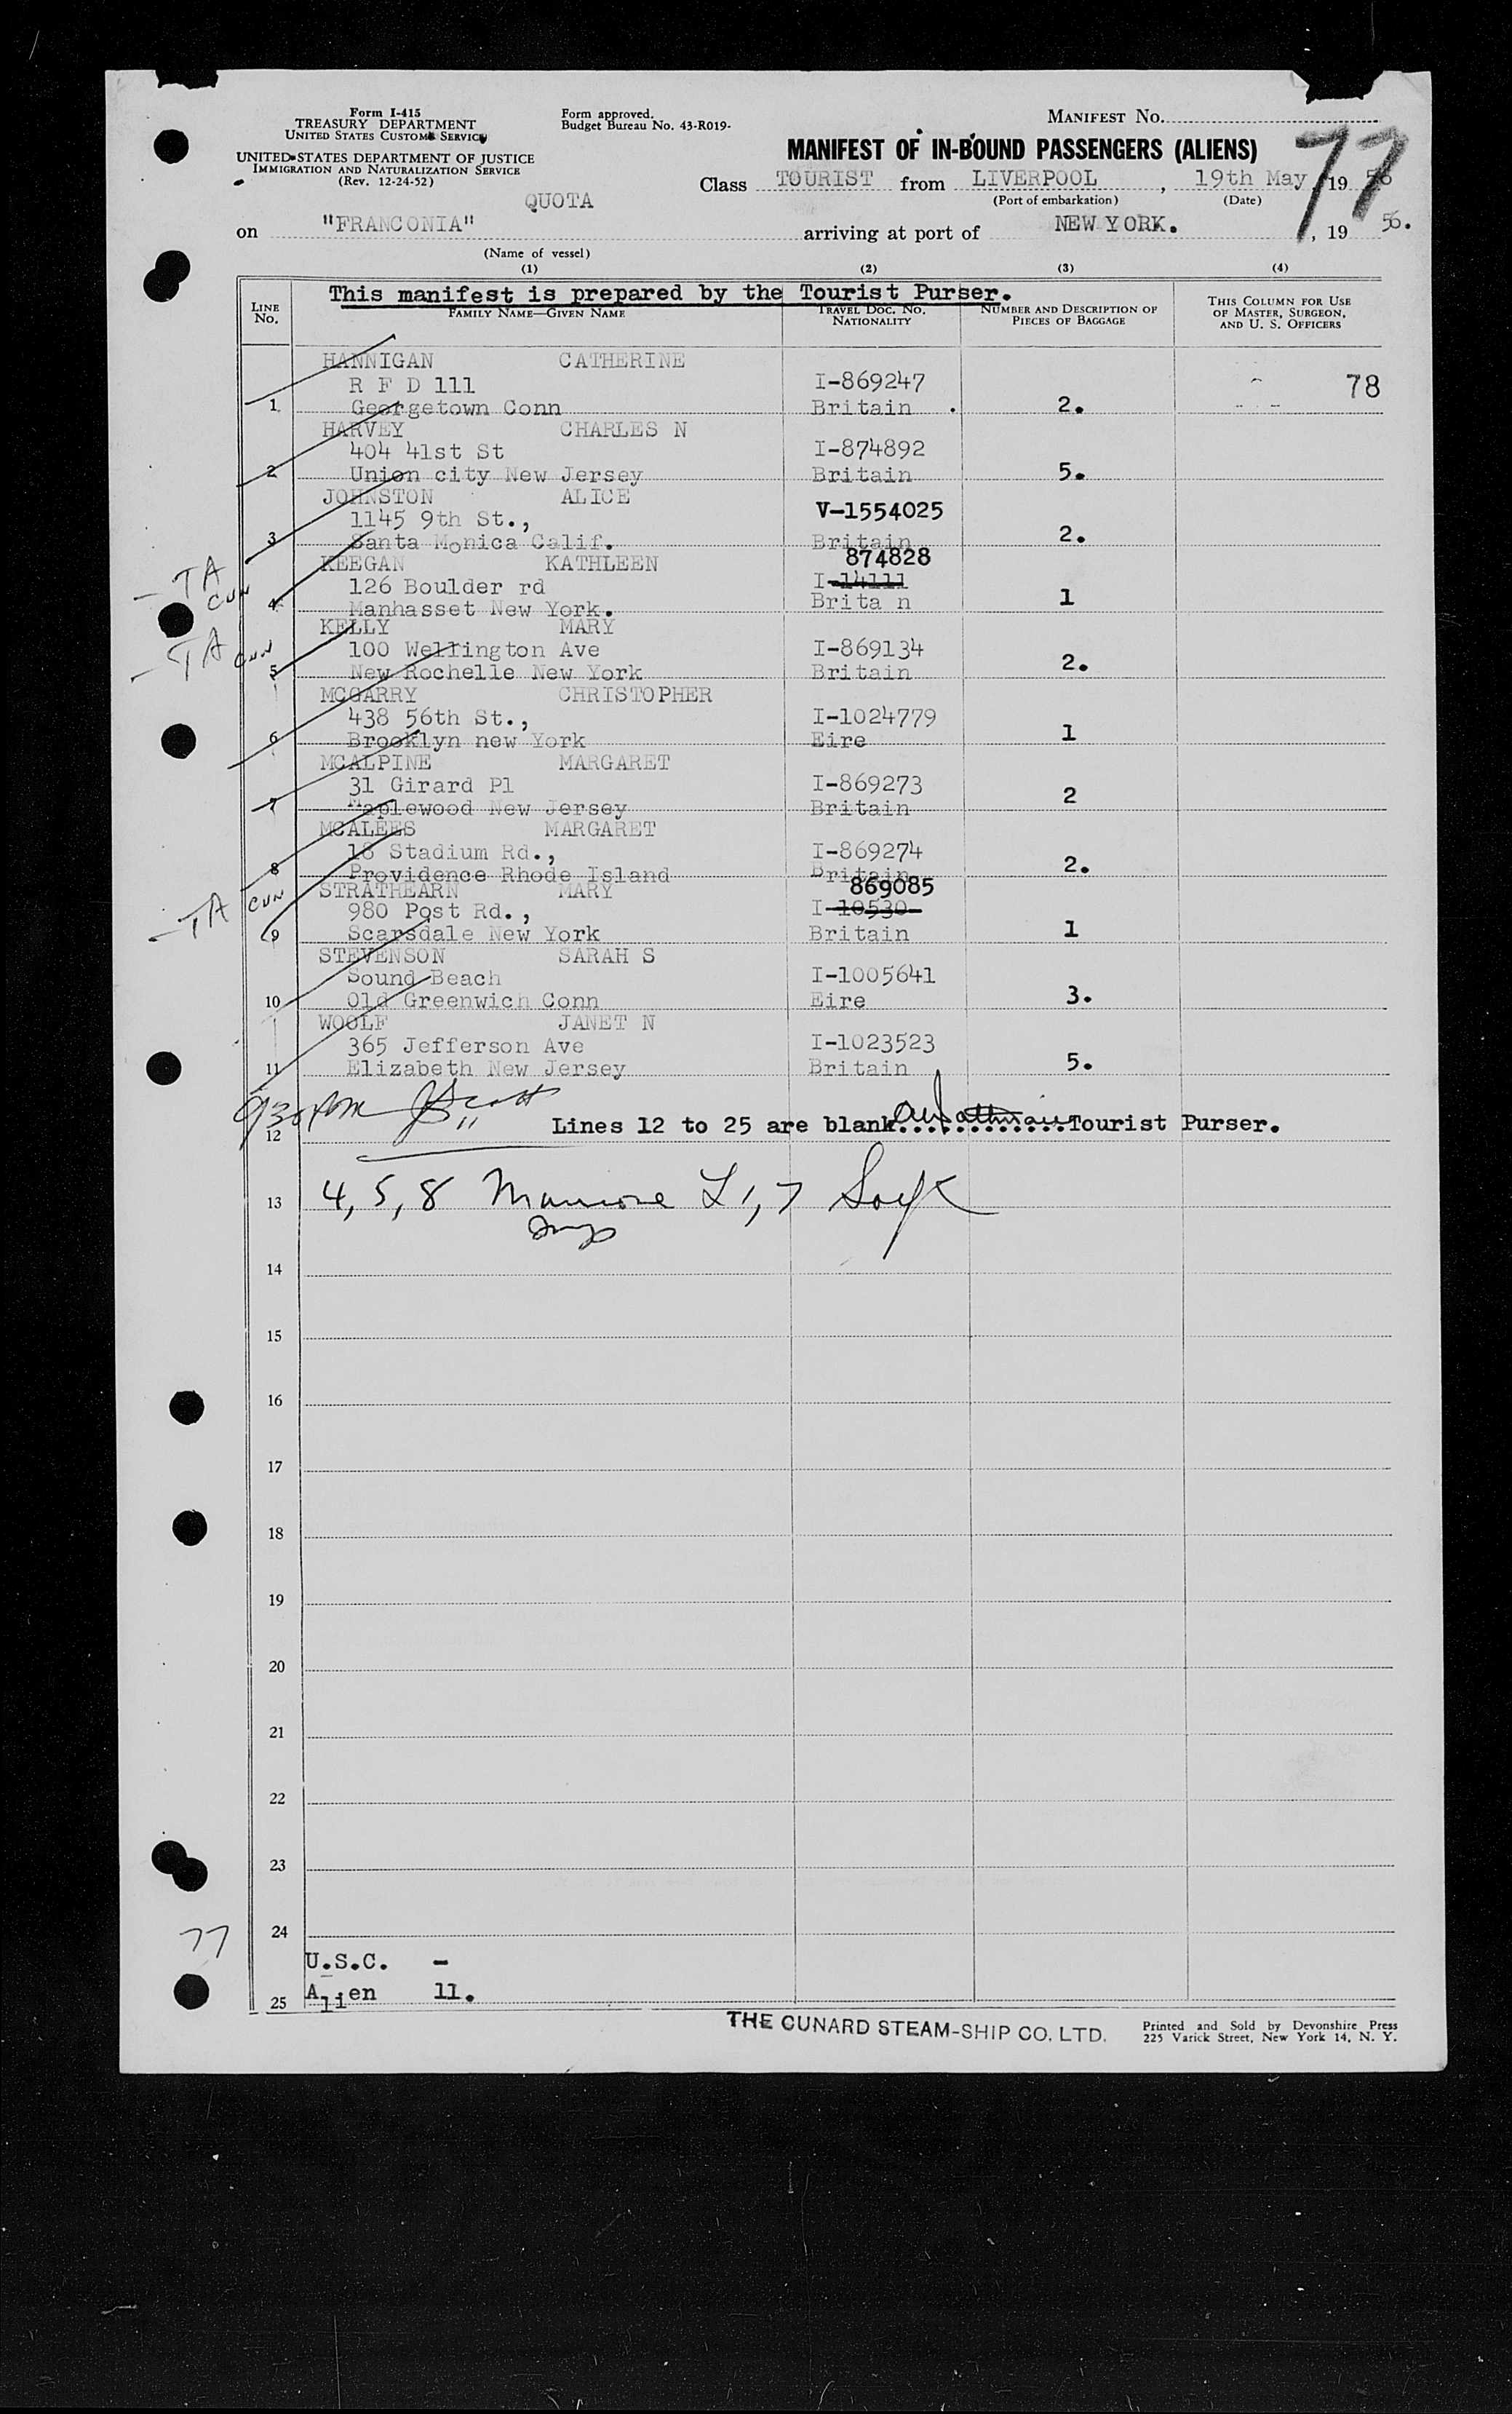 Form I-415
TREASURY DEPARTMENT
UNITED STATES CUSTOMS SERVICE
Form approved.
Budget Bureau No. 43-R019-
MANIFEST NO.
UNITED STATES DEPARTMENT OF JUSTICE
IMMIGRATION AND NATURALIZATION SERVICE
(Rev. 12-24-52)
MANIFEST OF IN-BOUND PASSENGERS (ALIENS)
77
Class TOURIST from LIVERPOOL, 19th May, 19 56
(Port of embarkation) (Date)
QUOTA
on "FRANCONIA" arriving at port of NEW YORK. , 19 56.
(Name of vessel)
(1) (2) (3) (4)
This manifest is prepared by the Tourist Purser.
LINE No. FAMILY NAME—GIVEN NAME TRAVEL DOC. NO. NATIONALITY NUMBER AND DESCRIPTION OF PIECES OF BAGGAGE THIS COLUMN FOR USE OF MASTER, SURGEON, AND U. S. OFFICERS
HANNIGAN CATHERINE
R F D 111 I-869247 78
1 Georgetown Conn Britain . 2.
HARVEY CHARLES N
404 41st St I-874892
2 Union city New Jersey Britain 5.
JOHNSTON ALICE
1145 9th St., V-1554025
3 Santa Monica Calif. Britain 2.
TA CUN KEEGAN KATHLEEN 874828
126 Boulder rd I-14111
4 Manhasset New York. Brita n 1
TA CUN KELLY MARY
100 Wellington Ave I-869134
5 New Rochelle New York Britain 2.
MCGARRY CHRISTOPHER
438 56th St., I-1024779
6 Brooklyn new York Eire 1
MCALPINE MARGARET
31 Girard Pl I-869273
7 Maplewood New Jersey Britain 2
MCALEES MARGARET
18 Stadium Rd., I-869274
8 Providence Rhode Island Britain 2.
TA CUN STRATHEARN MARY 869085
980 Post Rd., I-10530
9 Scarsdale New York Britain 1
STEVENSON SARAH S
Sound Beach I-1005641
10 Old Greenwich Conn Eire 3.
WOOLF JANET N
365 Jefferson Ave I-1023523
11 Elizabeth New Jersey Britain 5.
12 Lines 12 to 25 are blank. Tourist Purser.
13 4, 5, 8 L 1, 7
14
15
16
17
18
19
20
21
22
23
77 24
U.S.C. -
25 Alien 11.
THE CUNARD STEAM-SHIP CO. LTD.
Printed and Sold by Devonshire Press
225 Varick Street, New York 14, N. Y.